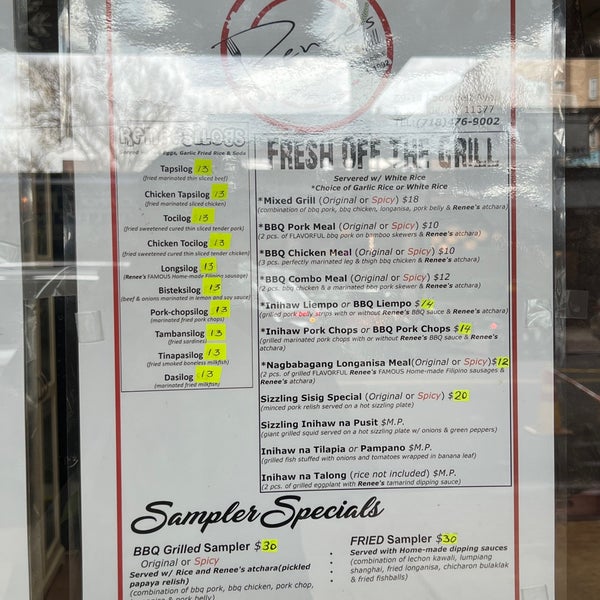 Renee's
11377
(718)476-9002
Served Eggs, Garlic Fried Rice & Soda
Tapsilog 13
(fried marinated thin sliced beef)
Chicken Tapsilog 13
(fried marinated sliced chicken)
Tocilog 13
(fried sweetened cured thin sliced tender pork)
Chicken Tocilog 13
(fried sweetened cured thin sliced tender chicken)
Longsilog 13
(Renee's FAMOUS Home-made Filipino sausage)
Bisteksilog 13
(beef & onions marinated in lemon and soy sauce)
Pork-chopsilog 13
(marinated fried pork chops)
Tambansilog 13
(fried sardines)
Tinapasilog 13
(fried smoked boneless milkfish)
Dasilog 13
(marinated fried milkfish)
FRESH OFF THE GRILL
Servered w/ White Rice
*Choice of Garlic Rice or White Rice
*Mixed Grill (Original or Spicy) $18
(combination of bbq pork, bbq chicken, longanisa, pork belly & Renee's atchara)
*BBQ Pork Meal (Original or Spicy) $10
(2 pcs. of FLAVORFUL bbq pork on bamboo skewers & Renee's atchara)
*BBQ Chicken Meal (Original or Spicy) $10
(3 pcs. perfectly marinated leg & thigh bbq chicken & Renee's atchara)
*BBQ Combo Meal (Original or Spicy) $12
(2 pcs. bbq chicken & a marinated bbq pork skewer & Renee's atchara)
*Inihaw Liempo or BBQ Liempo $14
(grilled pork belly strips with or without Renee's BBQ sauce & Renee's atchara)
*Inihaw Pork Chops or BBQ Pork Chops $14
(grilled marinated pork chops with or without Renee's BBQ sauce & Renee's
atchara)
*Nagbabagang Longanisa Meal(Original or Spicy)$12
(2 pcs. of grilled FLAVORFUL Renee's FAMOUS Home-made Filipino sausages &
Renee's atchara)
Sizzling Sisig Special (Original or Spicy) $20
(minced pork relish served on a hot sizzling plate)
Sizzling Inihaw na Pusit $M.P.
(giant grilled squid served on a hot sizzling plate w/ onions & green peppers)
Inihaw na Tilapia or Pampano $M.P.
(grilled fish stuffed with onions and tomatoes wrapped in banana leaf)
Inihaw na Talong (rice not included) $M.P.
(2 pcs. of grilled eggplant with Renee's tamarind dipping sauce)
Sampler Specials
BBQ Grilled Sampler $30
Original or Spicy
Served w/ Rice and Renee's atchara(pickled
papaya relish)
(combination of bbq pork, bbq chicken, pork chop,
& pork belly)
FRIED Sampler $30
Served with Home-made dipping sauces
(combination of lechon kawali, lumpiang
shanghai, fried longanisa, chicharon bulaklak
& fried fishballs)